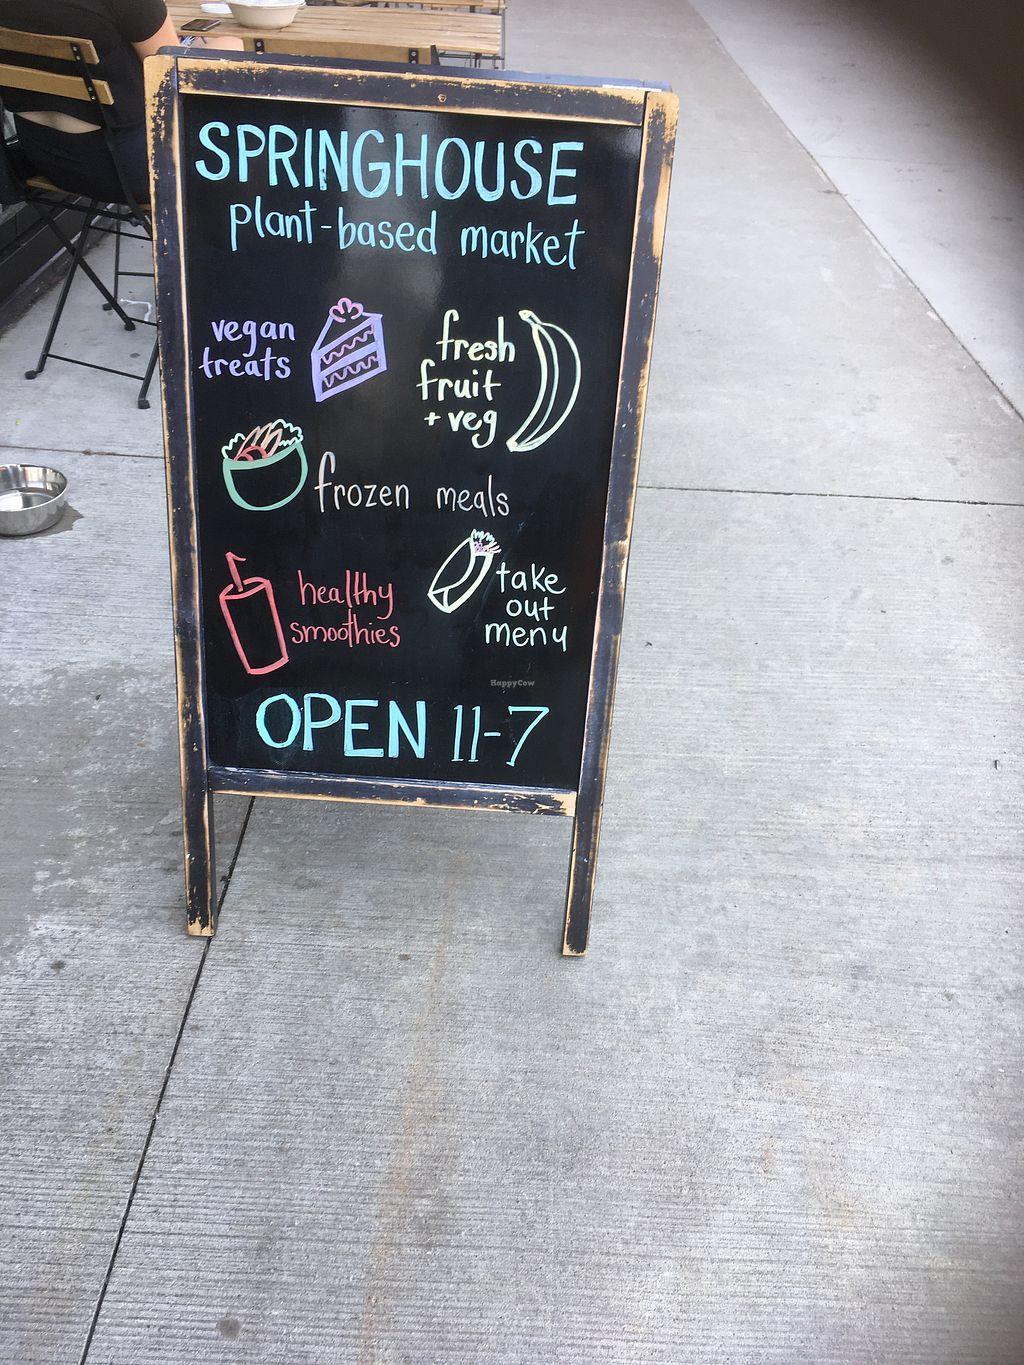 SPRINGHOUSE
plant-based market
vegan
treats
fresh
fruit
+ veg
frozen meals
healthy
smoothies
take
out
menu
HappyCow
OPEN 11-7